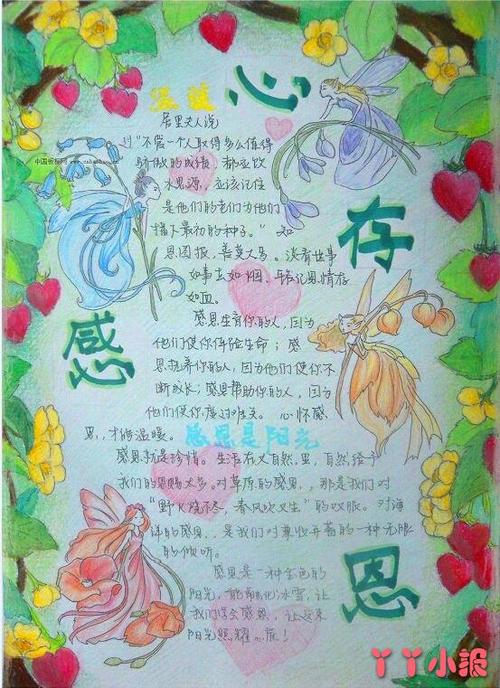 心存感恩
温暖
居里夫人说
过“不管一个人取得多么值得
骄傲的成绩，都应饮
水思源，应该记住
是他们的老师为他们
播下最初的种子。”知
恩图报，善莫大焉。淡看世事
如事去如烟，铭记恩情存
如血。
感恩生育你的人，因为
他们使你体验生命；感
恩抚养你的人，因为他们使你不
断成长；感恩帮助你的人，因为
他们使你度过难关。心怀感
恩，才能温暖。
感恩是阳光
感恩就是珍惜。生活在大自然里，自然给予
我们的恩赐太多。对草原的感恩，，那是我们对
“野火烧不尽，春风吹又生”的叹服。对海
洋的感恩，，是我们对兼收并蓄的一种无限
的倾听。
感恩是一种金色的
阳光，能融化冰雪，让
我们学会感恩，让这束
阳光照耀心底！
中国板报网
丫丫小报